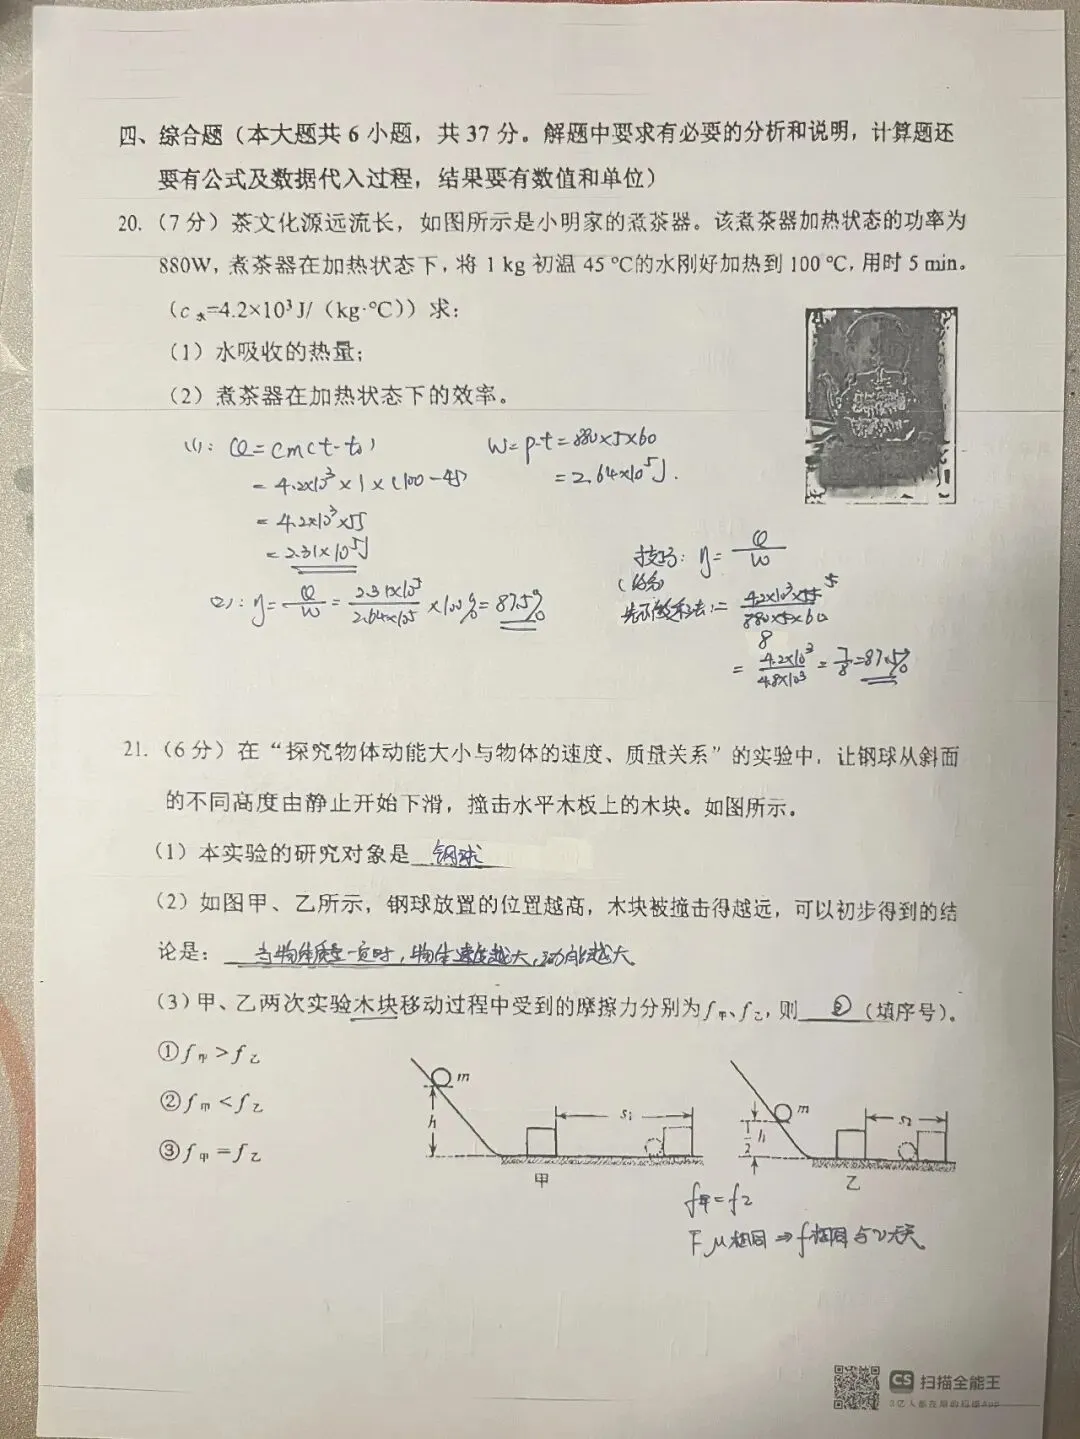 四、综合题（本大题共 6 小题，共 37 分。解题中要求有必要的分析和说明，计算题还
要有公式及数据代入过程，结果要有数值和单位）
20.（7 分）茶文化源远流长，如图所示是小明家的煮茶器。该煮茶器加热状态的功率为
880W，煮茶器在加热状态下，将 1 kg 初温 45 ℃的水刚好加热到 100 ℃，用时 5 min。
（c水=4.2×10³J/（kg·℃））求：
（1）水吸收的热量；
（2）煮茶器在加热状态下的效率。
(1): Q=cm(t-t₀)
= 4.2×10³×1×(100-45)
= 4.2×10³×55
= 2.31×10⁵J
W=P·t=880×5×60
=2.64×10⁵J.
(2): η= Q/W = 2.31×10⁵/2.64×10⁵ ×100%= 87.5%
技巧: η= Q/W
(约分)
= 4.2×10³×55 5/880×5×60
8
= 4.2×10³/4.8×10³ = 7/8 =87.5%
21.（6 分）在“探究物体动能大小与物体的速度、质量关系”的实验中，让钢球从斜面
的不同高度由静止开始下滑，撞击水平木板上的木块。如图所示。
（1）本实验的研究对象是 钢球
（2）如图甲、乙所示，钢球放置的位置越高，木块被撞击得越远，可以初步得到的结
论是： 当物体质量一定时，物体速度越大，动能越大
（3）甲、乙两次实验木块移动过程中受到的摩擦力分别为f甲、f乙，则 ③ （填序号）。
①f甲>f乙
②f甲<f乙
③f甲=f乙
m
h
s₁
甲
m
1/2 h
s₂
乙
f甲=f乙
F μ相同⇒f相同与v无关
CS 扫描全能王
3亿人都在用的扫描App